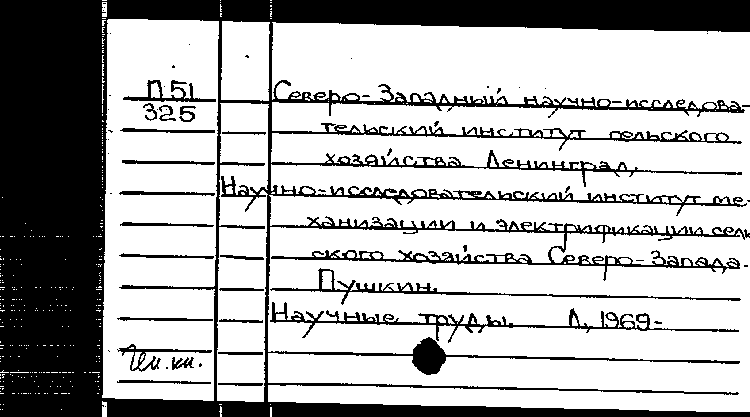 П51
325
Северо-Западный научно-исследова-
тельский институт сельского
хозяйства Ленинград,
Научно-исследовательский институт ме-
ханизации и электрификации сель
ского хозяйства Северо-Запада.
Пушкин.
Научные труды. Л., 1969-